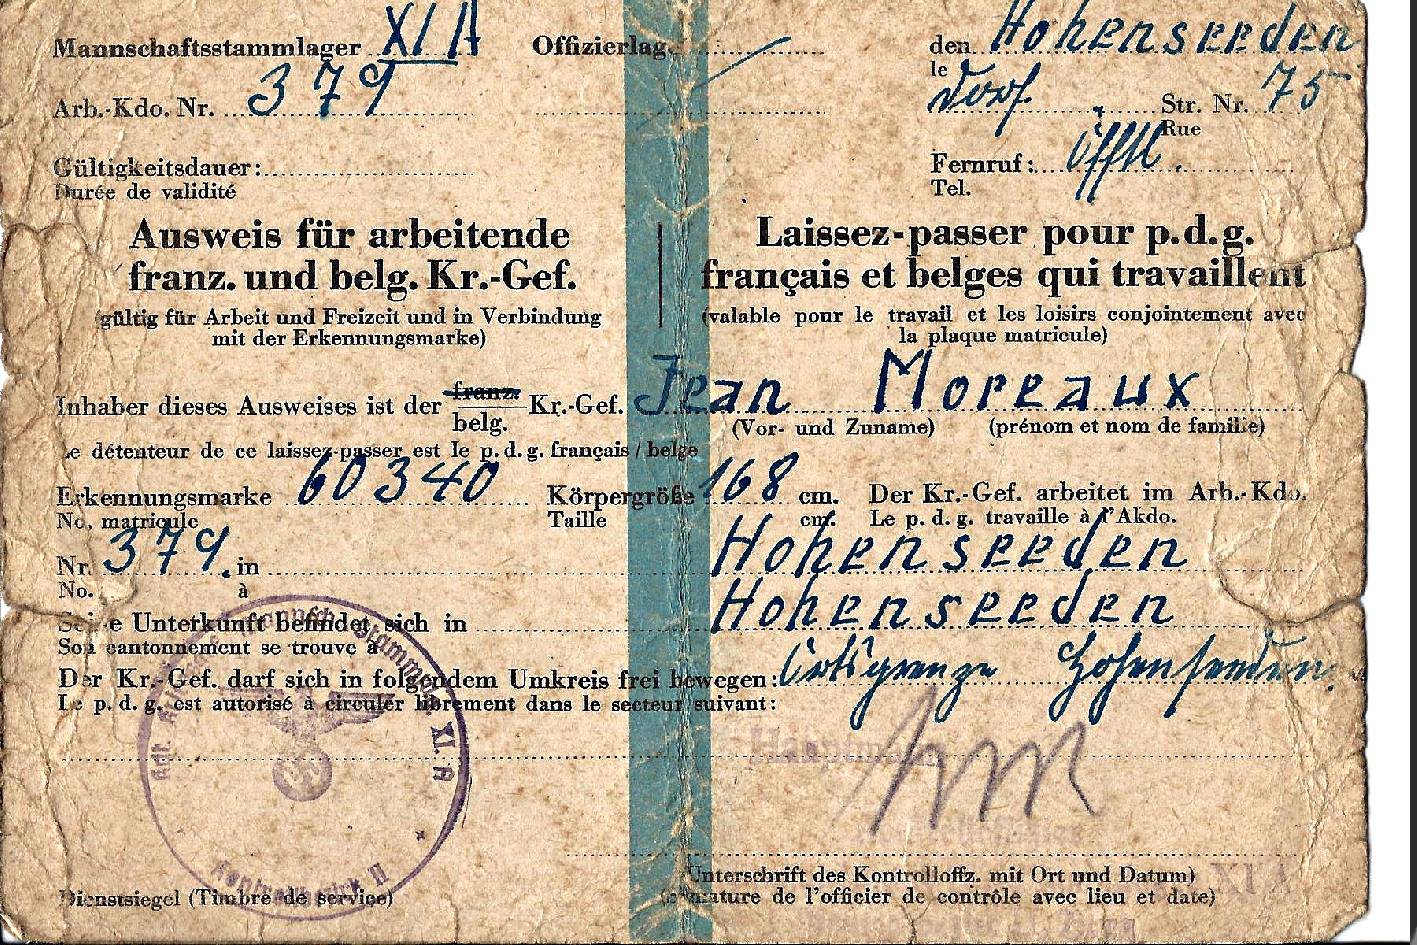 Mannschaftsstammlager XI A Offizierlag. den Hohenseeden
le
Arb.-Kdo. Nr. 379 Dorf. Str. Nr. 75
Rue
Gültigkeitsdauer: Fernruf: öfftl.
Durée de validité Tel.
Ausweis für arbeitende
franz. und belg. Kr.-Gef.
(gültig für Arbeit und Freizeit und in Verbindung
mit der Erkennungsmarke)
Laissez-passer pour p.d.g.
français et belges qui travaillent
(valable pour le travail et les loisirs conjointement avec
la plaque matricule)
Inhaber dieses Ausweises ist der franz. belg. Kr.-Gef. Jean Moreaux
(Vor- und Zuname) (prénom et nom de famille)
Le détenteur de ce laissez-passer est le p.d.g. français / belge
Erkennungsmarke 60340 Körpergröße 168 cm. Der Kr.-Gef. arbeitet im Arb.-Kdo.
No. matricule Taille cm. Le p. d. g. travaille à l'Akdo.
Nr. 379. in Hohenseeden
No. à
Seine Unterkunft befindet sich in Hohenseeden
Son cantonnement se trouve à
Der Kr.-Gef. darf sich in folgendem Umkreis frei bewegen: Ortsgrenze Hohenseeden.
Le p. d. g. est autorisé à circuler librement dans le secteur suivant:
Hauptmann
XI. A
Unterschrift des Kontrolloffz. mit Ort und Datum)
Dienstsiegel (Timbre de service) (signature de l'officier de contrôle avec lieu et date)